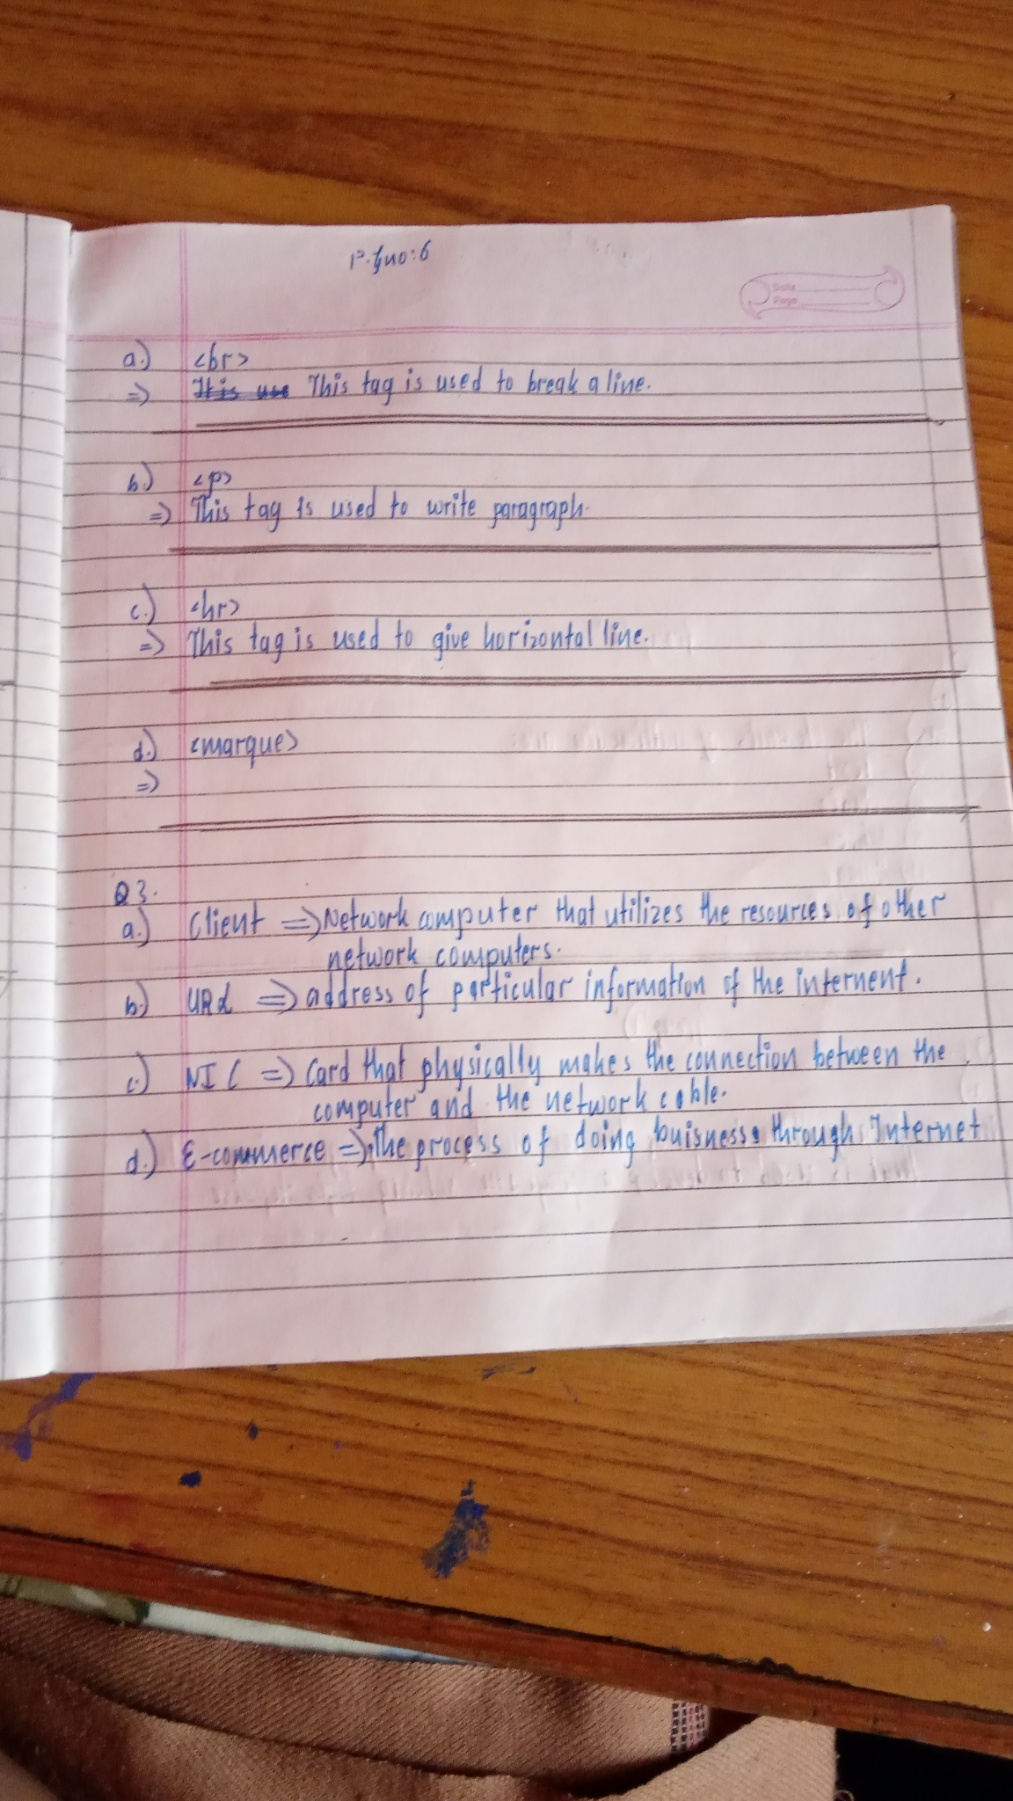 P.g no:6
Date
Page
a.) <br>
=> It is use This tag is used to break a line.
b.) <p>
=> This tag is used to write paragraph.
c.) <hr>
=> This tag is used to give horizontal line.
d.) <marque>
=>
Q3.
a.) Client => Network computer that utilizes the resources of other
network computers.
b.) URL => address of particular information of the internent.
c.) NIC => Card that physically makes the connection between the
computer and the network cable.
d.) E-commerce => The process of doing buisness through Internet